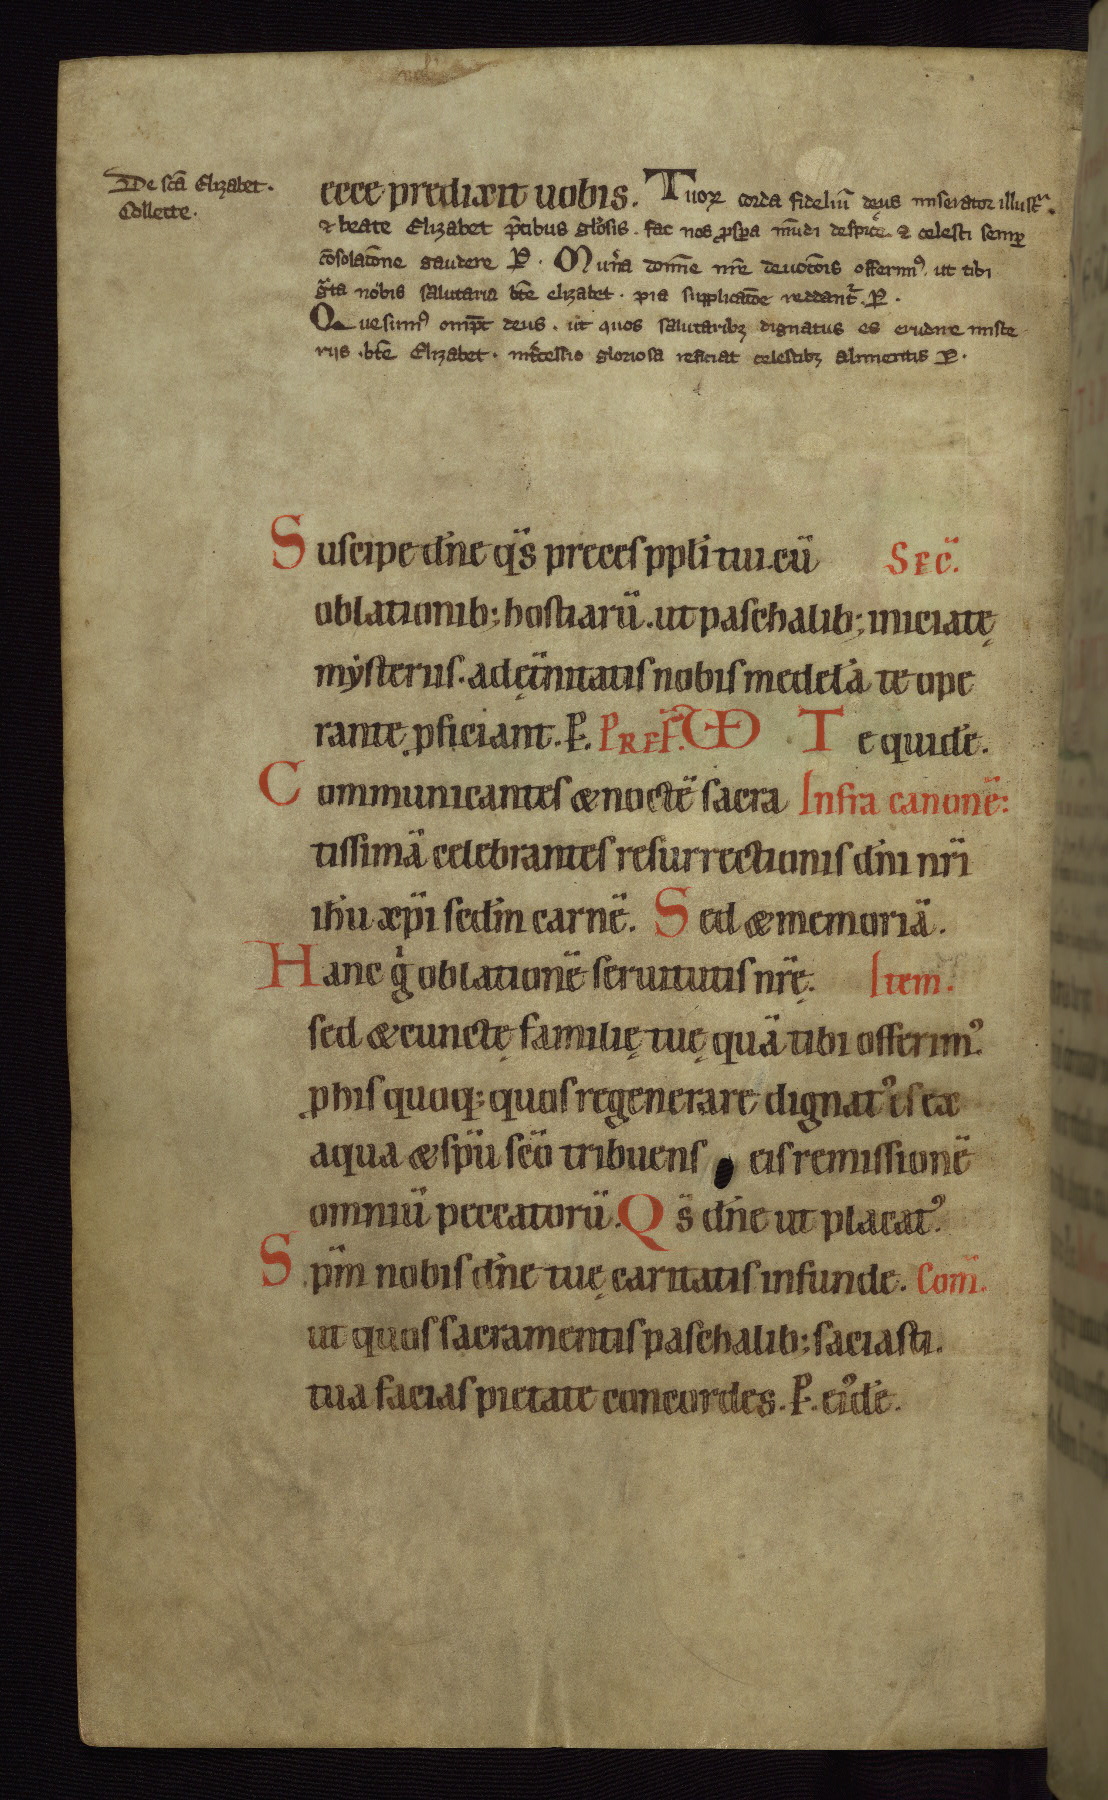 De scā Elizabet.
Collecte.
ecce predixit uobis. Tuoꝝ corda fideliū deus miserator illust̄.
& beate Elizabet p̄cibus gl̓osis. fac nos ꝓsꝑa mūdi despic̓e. & celesti semꝑ
c̄solatōne gaudere P. Mun̓a domīe nr̄e deuotōis offerimꝰ. ut tibi
gr̄ta nobis salutaria bt̄e elizabet. pia supplicatōe reddant̓. P.
Quesumꝰ omp̄t deus. ut quos salutaribꝫ dignatus es erudire miste
riis. bt̄e Elizabet. int̓cessio gloriosa reficiat celestibꝫ alimentis P.
Suscipe dn̄e qs̄ preces ppl̄i tui. cū Sec̄.
oblationib; hostiarū. ut paschalib; iniciatę
mẏsteriis. ad ęt̄nitatis nobis medelā te ope
rantę ꝓficiant. P. Pref. VD Te quidē.
Communicantes & noctē sacra Infra canonē:
tissimā celebrantes resurrectionis dn̄i nr̄i
ih̄u xp̄i scd̄m carnē. Sed & memoriā.
Hanc g̓ oblationē seruitutis nr̄ę. Item.
sed & cunctę familię tuę quā tibi offerimꝰ.
ꝓ his quoq; quos regenerare dignatꝰ es ex
aqua & spū scō tribuens eis remissionē
omniū peccatorū. Qs̄ dn̄e ut placatꝰ.
Spm̄ nobis dn̄e tuę caritatis infunde. Com̄.
ut quos sacramentis paschalib; saciasti.
tua facias pietate concordes. P. eiꝰdē.